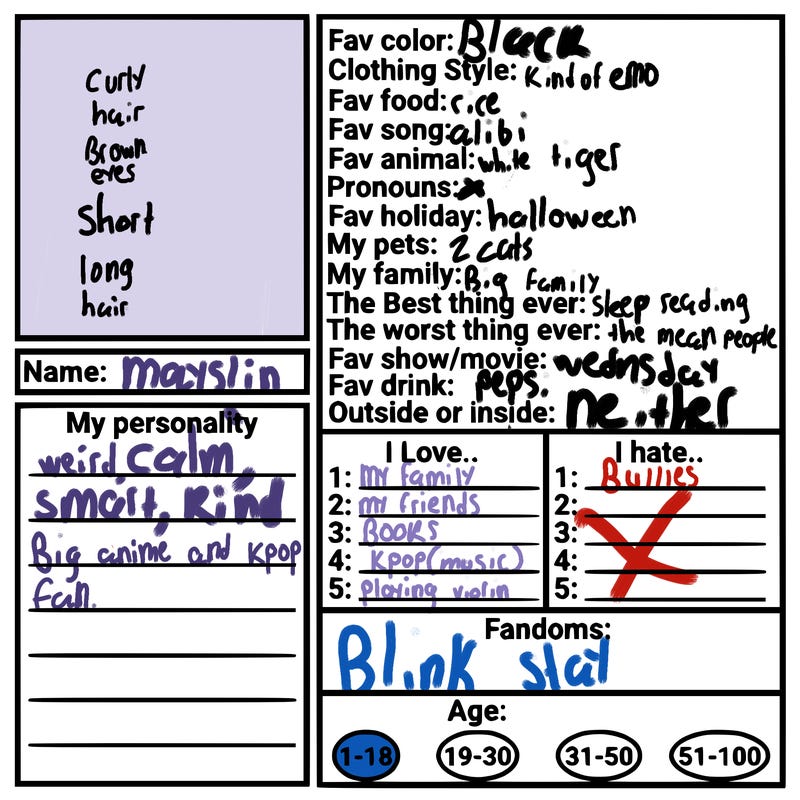 Curly
hair
Brown
eyes
Short
long
hair
Name: mayslin
My personality
weird, calm,
smart, kind
Big anime and kpop
fan.
Fav color: Black
Clothing Style: Kind of emo
Fav food: rice
Fav song: alibi
Fav animal: white tiger
Pronouns: x
Fav holiday: halloween
My pets: 2 cats
My family: Big family
The Best thing ever: sleep reading
The worst thing ever: the mean people
Fav show/movie: wednsday
Fav drink: pepsi
Outside or inside: neither
I Love..
1: my family
2: my friends
3: BOOKS
4: kpop(music)
5: playing violin
I hate..
1: Bullies
2:
3:
4:
5:
Fandoms:
Blink stay
Age:
1-18 19-30 31-50 51-100